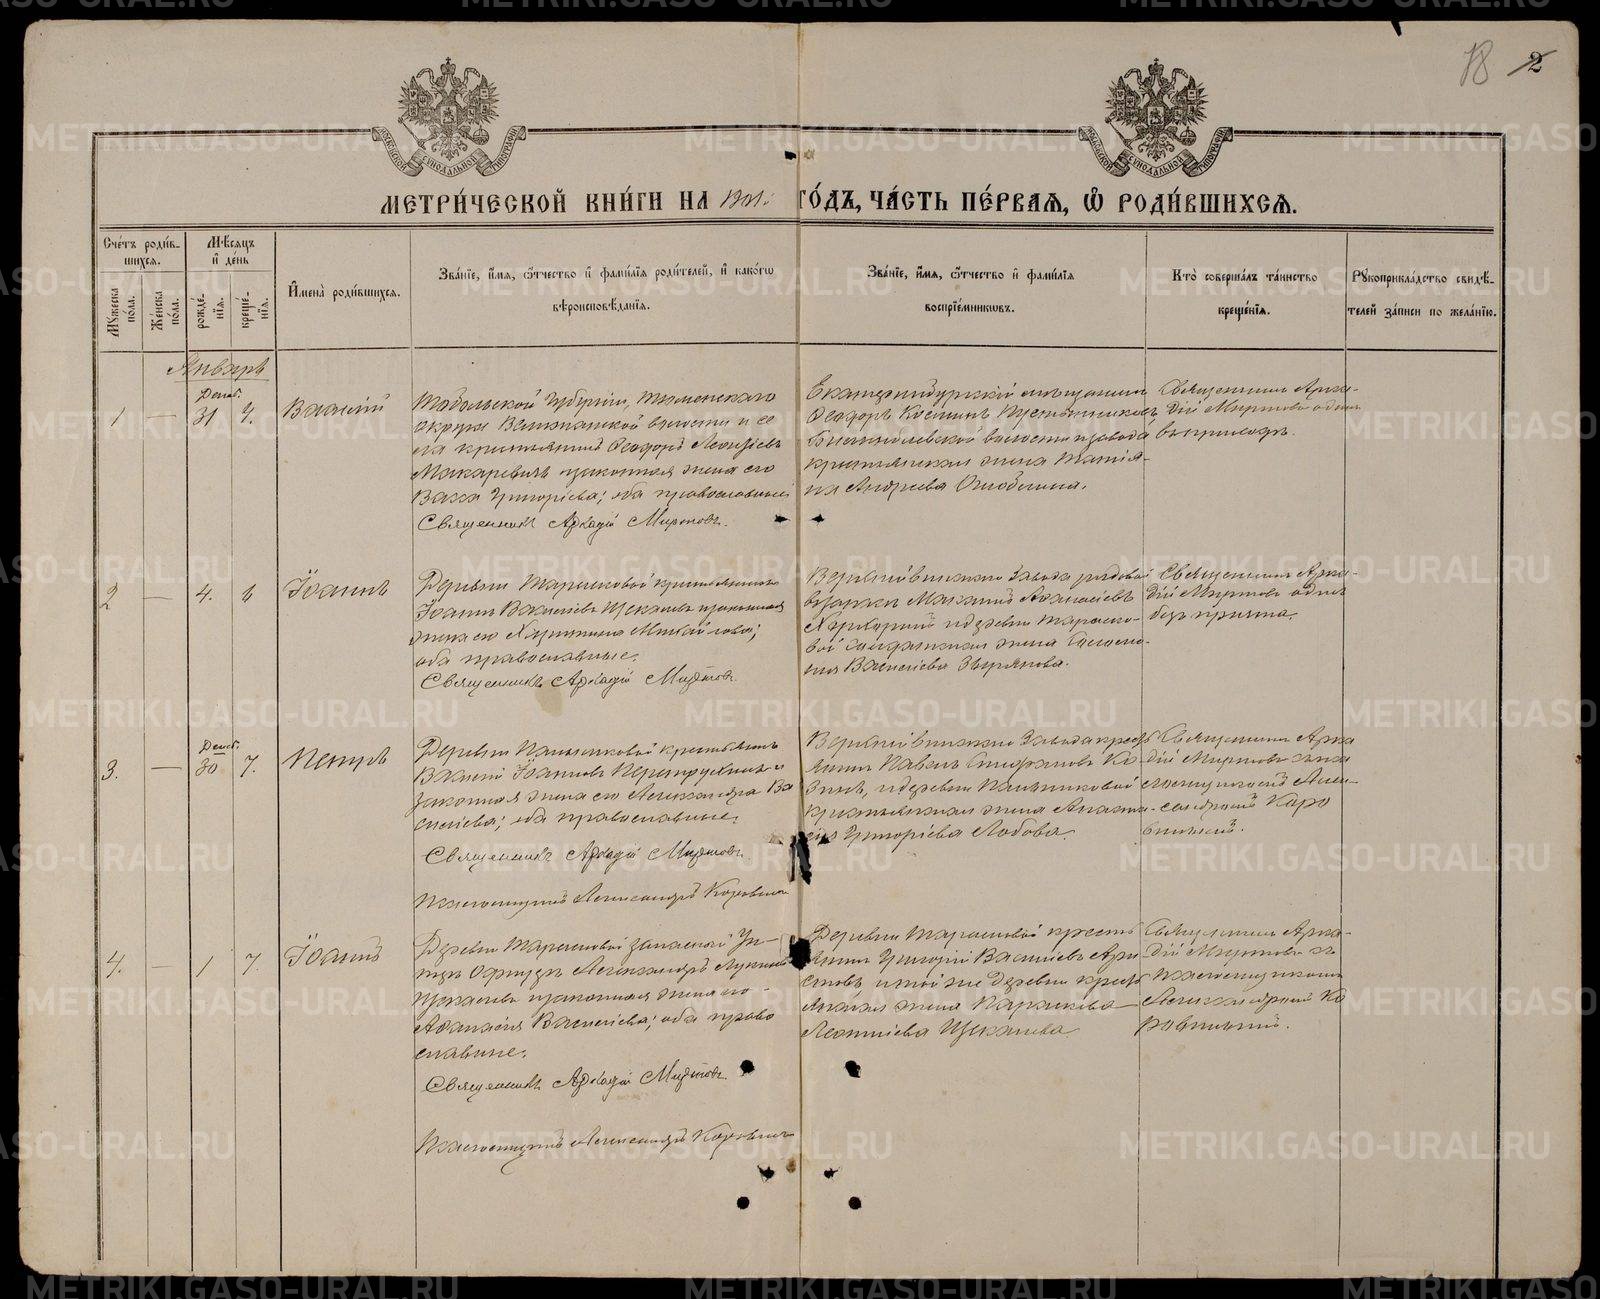 18 2
МОСКОВСКОЙ СѴНОДАЛЬНОЙ ТИПОГРАФІИ
МОСКОВСКОЙ СѴНОДАЛЬНОЙ ТИПОГРАФІИ
МЕТРИ́ЧЕСКОЙ КНИ́ГИ НА 1901. ГО́ДЪ, ЧА́СТЬ ПЕ́РВАѦ, Ѽ РОДИ́ВШИХСѦ.
Сче́тъ роди́в-
шихсѧ.
Мꙋжеска по́ла.
Же́нска по́ла.
Мѣ́сѧцъ
и҆ де́нь
рожде́-
нїѧ.
креще́-
нїѧ.
И҆мена̀ роди́вшихсѧ.
Зва́нїе, и҆́мѧ, ѻ҆́тчество и҆ фами́лїѧ роди́телей, и҆ како́гѡ
вѣроисповѣ́данїѧ.
Зва́нїе, и҆́мѧ, ѻ҆́тчество и҆ фами́лїѧ
воспрїе́мникѡвъ.
Кто̀ соверша́лъ та́инство
креще́нїѧ.
Рꙋкоприкла́дство свидѣ́-
телей за́писи по жела́нїю.
Январь
1 — Декаб. 31 7. Василій
Тобольской Губерніи, Тюменскаго
округа волости и се
ла крестьянинъ Ѳеодоръ Леонтіевъ
Макаревичъ и законная жена его
Васса Григоріева; оба православные
Священникъ Аркадій Миртовъ.
Екатеринбургскій мѣщанинъ
Ѳеодоръ Косминъ Пустынниковъ
волости и завода
крестьянская жена Татія-
на Андреева
Священникъ Арка-
дій Миртовъ одинъ
въ приходѣ.
2 — 4. 6 Іоаннъ
Деревни Тарасковой крестьянинъ
Іоаннъ Васильевъ Щекалевъ и законная
жена его Харитина Михайлова;
оба православные.
Священникъ Аркадій Миртовъ
Верхнейвинскаго Завода рядовой
Аѳанасіевъ
и деревни Тараско-
вой солдатская жена
нія Васильева Зырянова.
Священникъ Арка-
дій Миртовъ одинъ
безъ причта.
3. — Декаб. 30 7. Петръ
Деревни Пальниковой крестьянинъ
Василій Іоанновъ и
законная жена его Александра Ва
сильева; оба православные.
Священникъ Аркадій Миртовъ
Псаломщикъ Александръ Коровинъ
Верхнейвинскаго Завода кресть
янинъ Павелъ Стефановъ Ко-
зинъ, и деревни Пальниковой
крестьянская жена Анаста-
сія Григоріева Лобова.
Священникъ Арка
дій Миртовъ съ пса
ломщикомъ Алек-
сандромъ Коро
винымъ.
4. — 1 7. Іоаннъ
Деревни Тарасковой запасной Ун-
теръ Офицеръ Александръ Лукинъ
Щекалевъ и законная жена его
Аѳанасія Васильева; оба право
славные.
Священникъ Аркадій Миртовъ
Псаломщикъ Александръ Коровинъ
Деревни Тарасковой кресть
янинъ Григорій Васильевъ Ари
стовъ, и той же деревни кресть
янская жена Параскева
Леонтіева Щекалева
Священникъ Арка-
дій Миртовъ съ
псаломщикомъ
Александромъ Ко
ровинымъ.
METRIKI.GASO-URAL.RU